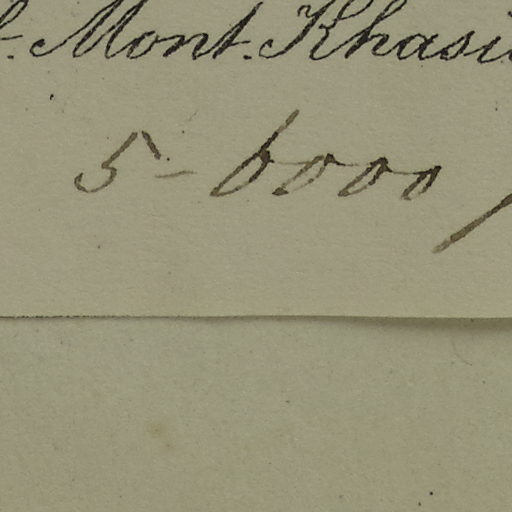 Mont. Khasi
5-6000